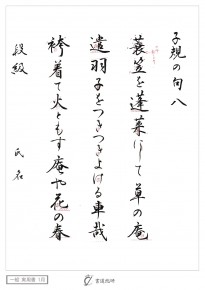 子規の句八
蓑笠を蓬莱にして草の庵
遣羽子をつきつきよける車哉
袴着て火ともす庵や花の春
段級 氏名